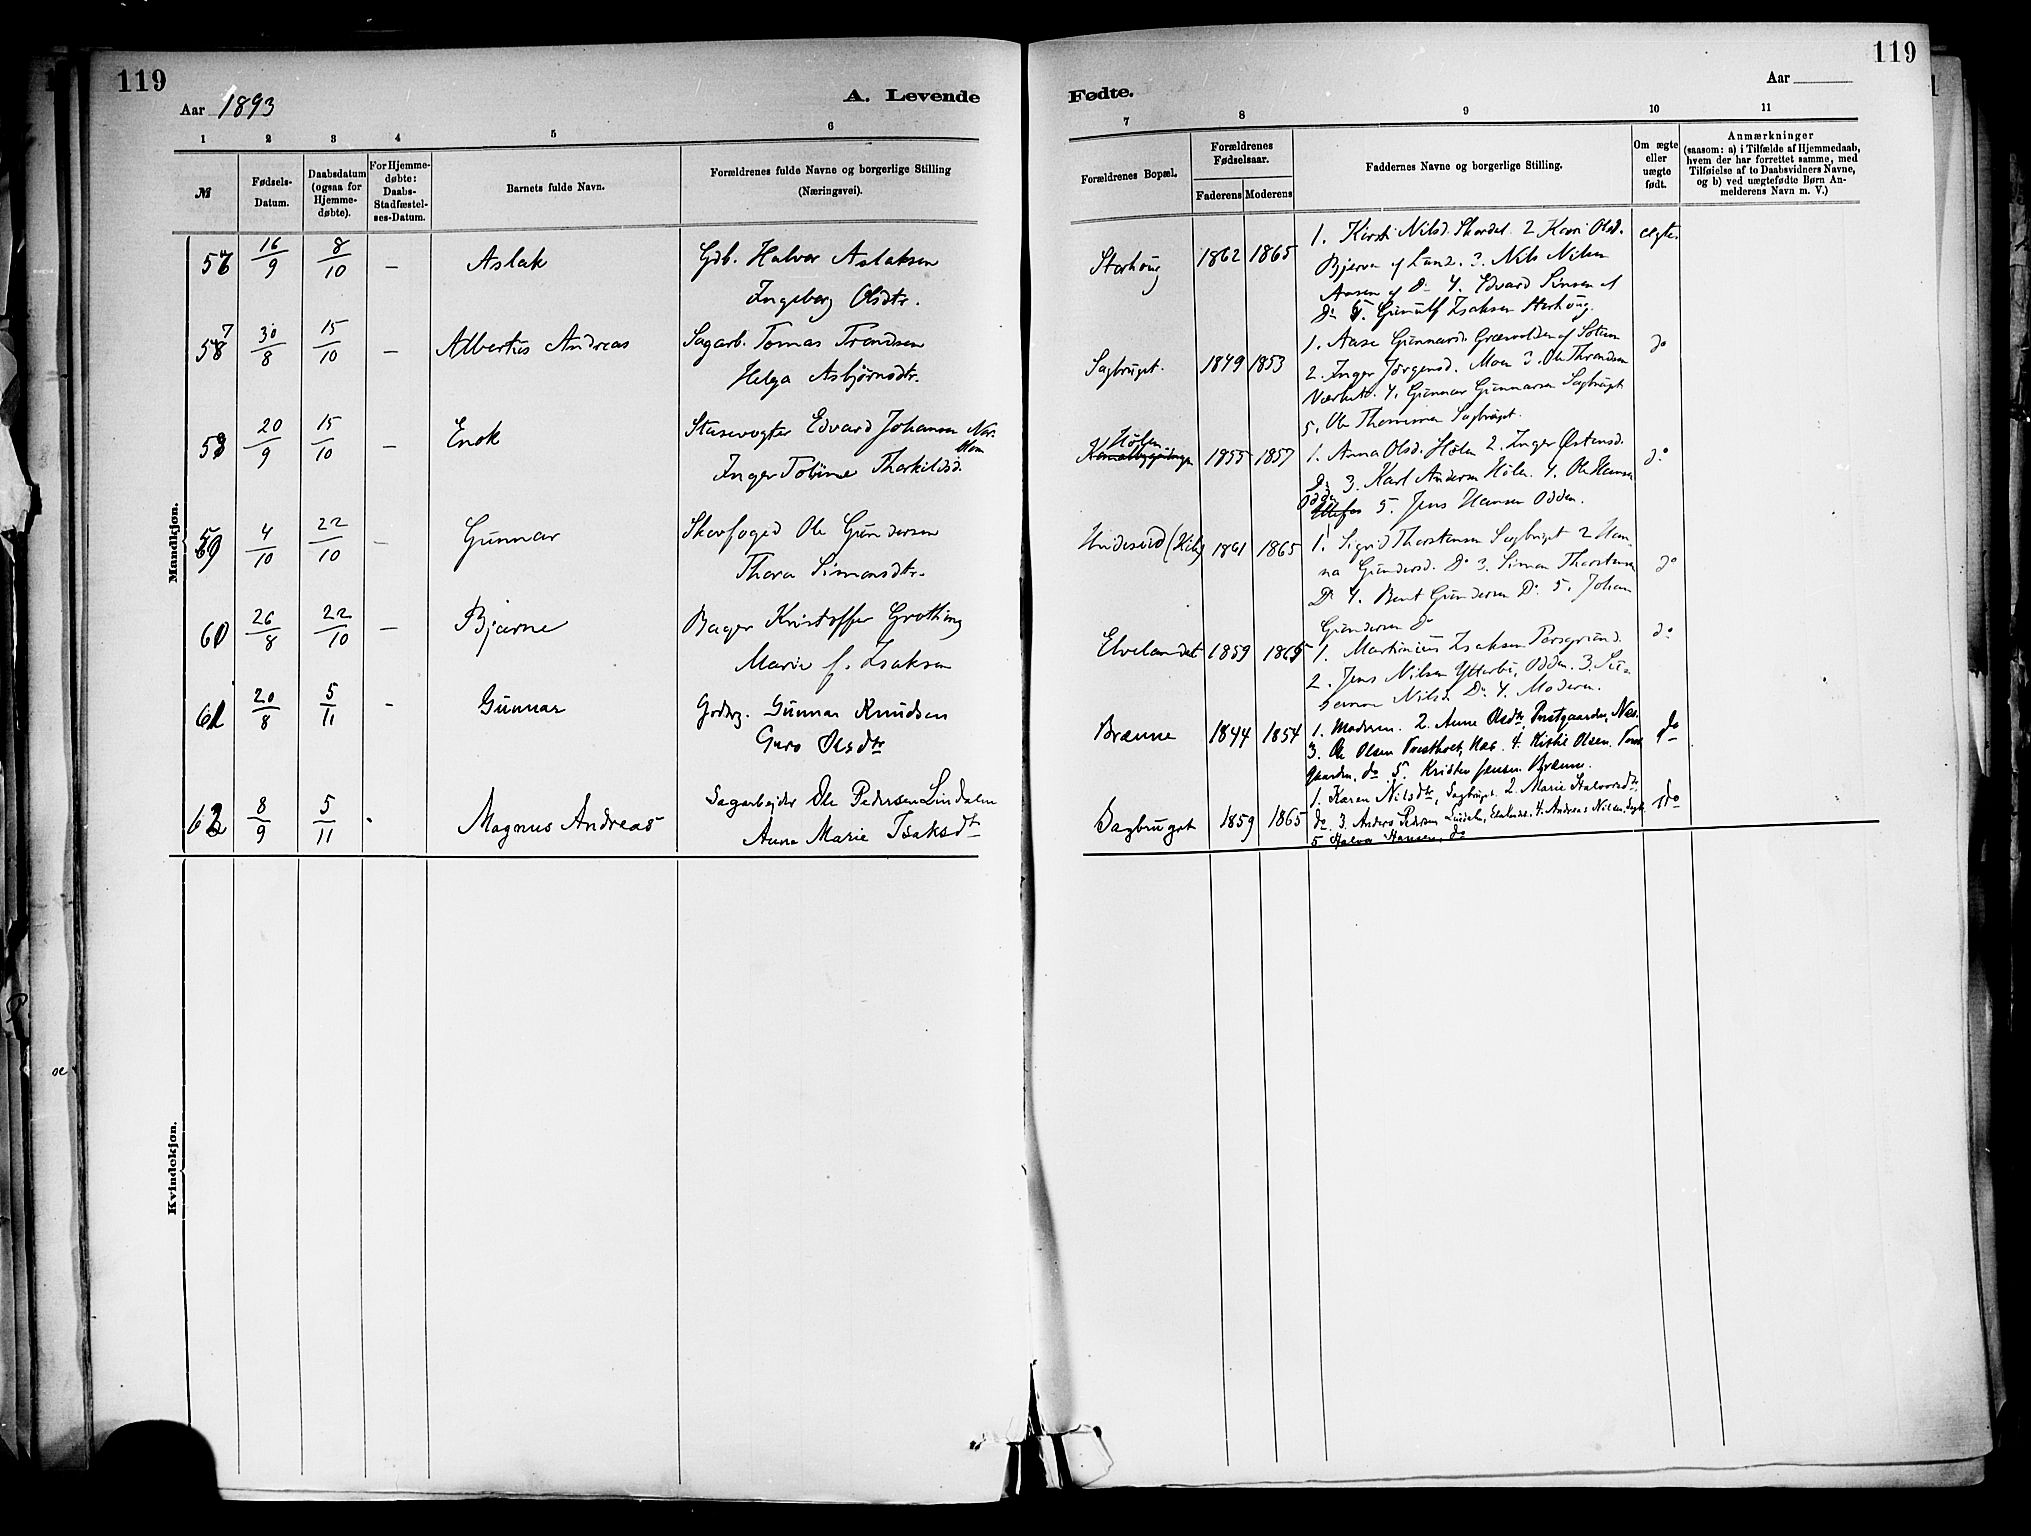 119
119
Aar 1893
A. Levende
Fødte.
Aar
1 2 3 4 5 6
7 8 9 10 11
№
Fødsels-
Datum.
Daabsdatum
(ogsaa for
Hjemme-
døbte).
For Hjemme-
døbte:
Daabs-
Stadfæstel-
ses-Datum.
Barnets fulde Navn.
Forældrenes fulde Navne og borgerlige Stilling
(Næringsvei).
Forældrenes Bopæl.
Forældrenes
Fødselsaar.
Faderens Moderens
Faddernes Navne og borgerlige Stilling.
Om ægte
eller
uægte
født.
Anmærkninger
(saasom: a) i Tilfælde af Hjemmedaab,
hvem der har forrettet samme, med
Tilføielse af to Daabsvidners Navne,
og b) ved uægtefødte Børn An-
melderens Navn m. V.)
Mandkjøn.
16/9 8/10 – Aslak
Gdb. Halvor Aslaksen
Ingeborg Olsdtr.
Storhoug 1862 1865
1. Kirsti Nilsd. 2 Kari Olsd.
Bjerva af Lund. 3. Nils Nilsen
Aasen af Do 4. Edvard Simsen af
Do 5. Gunulf Isaksen Storhoug.
ægte
30/8 15/10 – Albertus Andreas
Sagarb. Tomas Trondsen
Helga Asbjørnsdtr.
Sagbruget. 1849 1853
1. Aase Gunnarsd. Grævolden af
2. Inger Jørgensd. Moen 3. Ole Throndsen
4. Gunnar Gunnarsen Sagbruget
5. Ole Thomesen Sagbruget.
do
20/9 15/10 – Enok
Slusevogter Edvard Johansen
Inger Torkildsd.
Hølen 1855 1857
1. Anna Olsd. Hølen 2. Inger Østensd.
Do 3. Karl Andersen Hølen. 4. Ole Hansen
Odden 5. Jens Hansen Odden.
do
59 4/10 22/10 – Gunnar
Skovfoged Ole Gundersen
Thora Simonsdtr.
1861 1865
1. Sigrid Thorstensen Sagbruget 2 Han-
na Gundersd. Do 3. Simon Thorstensen
Do 4. Bent Gundersen Do 5. Johan
Gundersen do
do
60 26/8 22/10 – Bjarne
Bager Kristoffer Grotting
Marie f. Isaksen
Elvelandet 1859 1865
1. Martinius Isaksen Porsgrund.
2. Jens Nilsen Ytterbø, Odden. 3.
Nilsd. Do 4. Moderen.
do
61 20/8 5/11 - Gunnar
Gunnar Knudsen
Guro Olsdtr
Brænne 1844 1854
1. Moderen. 2. Anne Olsdtr, Præstgaarden, Næs.
3. Ole Olsen 4. Kittil Olsen.
gaarden, do 5. Kristen Jensen Brænne.
do
62 8/9 5/11 . Magnus Andreas
Sagarbejder Ole Pedersen Lindalen
Anne Marie Isaksdtr
Sagbruget 1859 1865
1. Karen Nilsdtr, Sagbruget. 2. Marie Halvorsdtr,
do. 3. Anders Pedersen 4. Andreas Nilsen, Sagbr.
5 Halvor Hansen, do
do
Kvindekjøn.